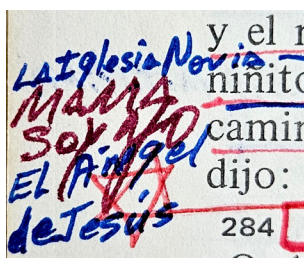 LA Iglesia Novia
MAMA
SOY YO
EL Ángel
de Jesús
y el
niñito
camin
dijo:
284